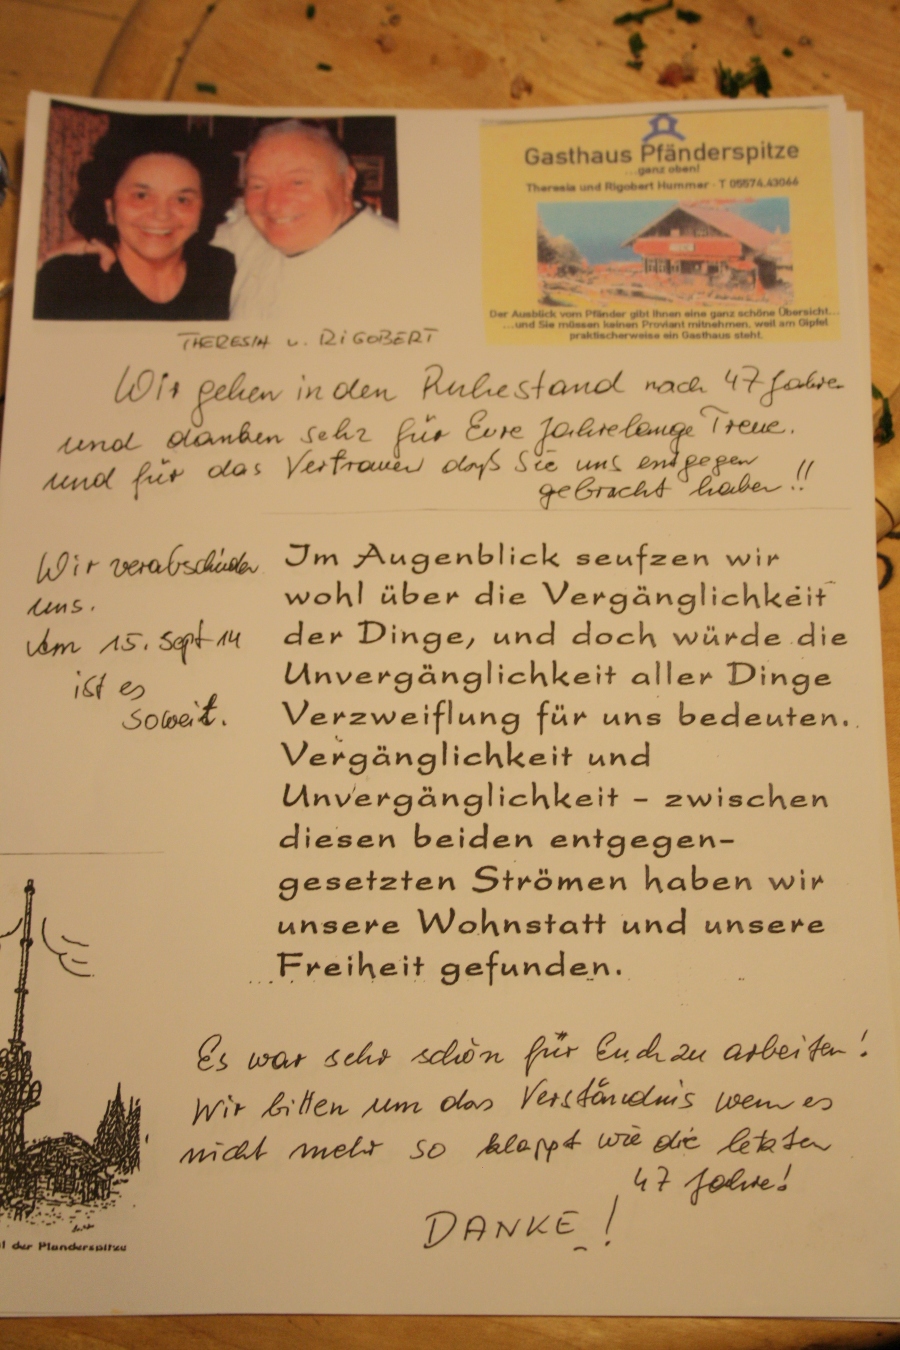 Gasthaus Pfänderspitze
...ganz oben!
Theresia und Rigobert Hummer - T 05574.43066
Der Ausblick vom Pfänder gibt Ihnen eine ganz schöne Übersicht...
...und Sie müssen keinen Proviant mitnehmen, weil am Gipfel
praktischerweise ein Gasthaus steht.
THERESIA u. RIGOBERT
Wir gehen in den Ruhestand nach 47 Jahren
und danken sehr für Eure Jahrelange Treue.
und für das Vertrauen daß Sie uns entgegen
gebracht haben!!
Wir verabschieden
uns.
Am 15. Sept 14
ist es
soweit.
Im Augenblick seufzen wir
wohl über die Vergänglichkeit
der Dinge, und doch würde die
Unvergänglichkeit aller Dinge
Verzweiflung für uns bedeuten.
Vergänglichkeit und
Unvergänglichkeit – zwischen
diesen beiden entgegen-
gesetzten Strömen haben wir
unsere Wohnstatt und unsere
Freiheit gefunden.
Es war sehr schön für Euch zu arbeiten!
Wir bitten um das Verständnis wenn es
nicht mehr so klappt wie die letzten
47 Jahre!
DANKE!
der Pfänderspitze